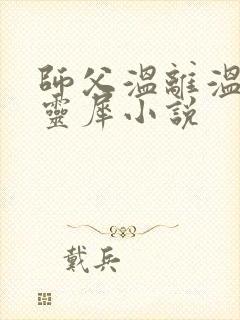 師父溫離溫
靈犀小說
戴兵